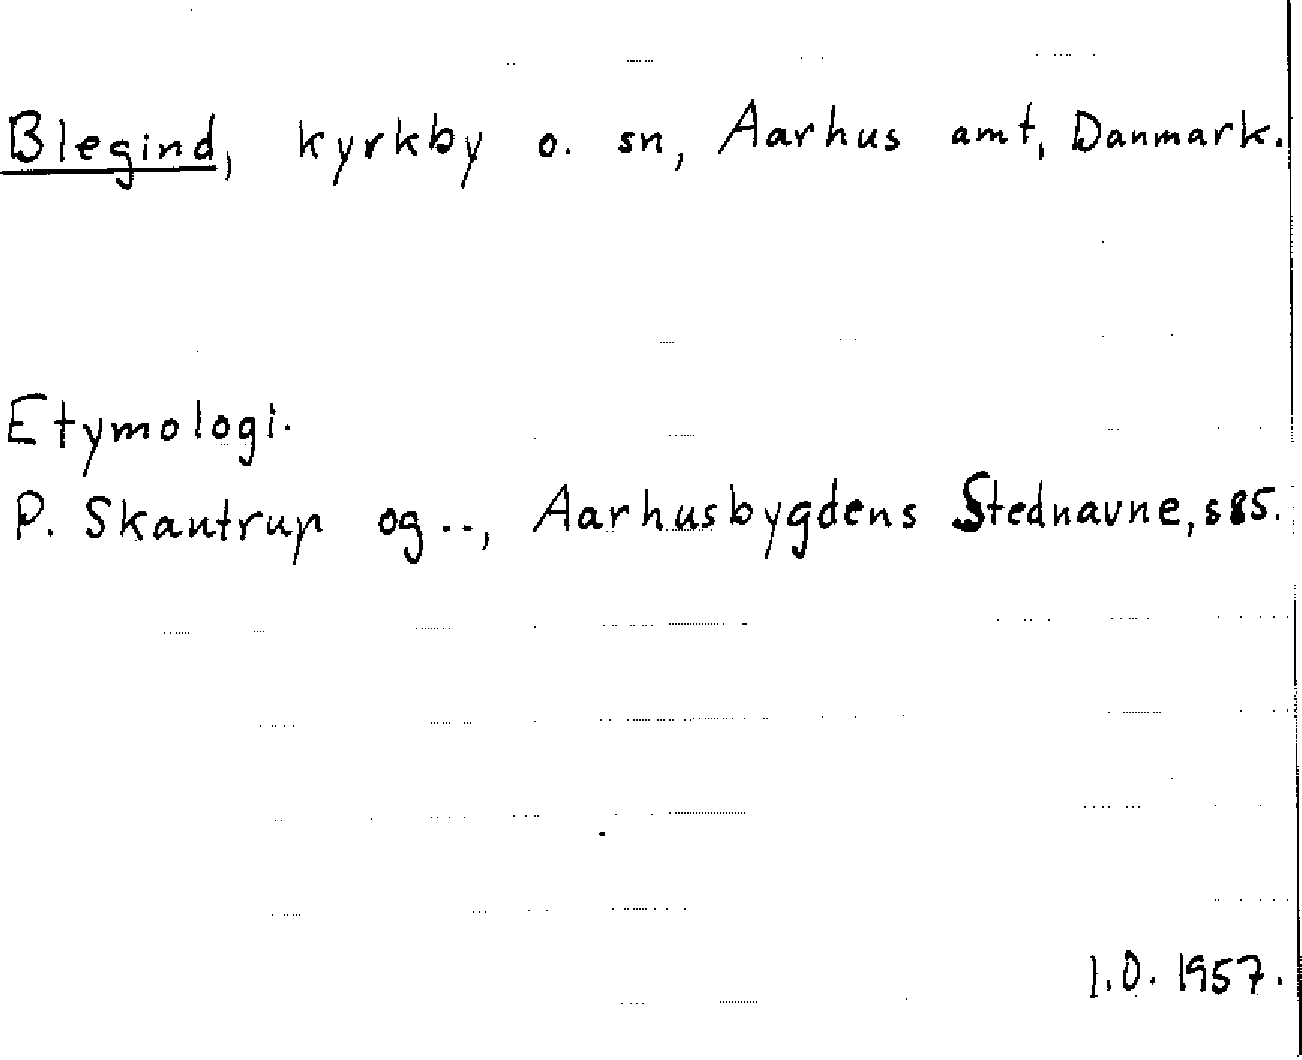 Blegind, kyrkby o. sn, Aarhus amt, Danmark.
Etymologi.
P. Skautrup og .., Aarhusbygdens Stednavne, s 85.
I.O. 1957.